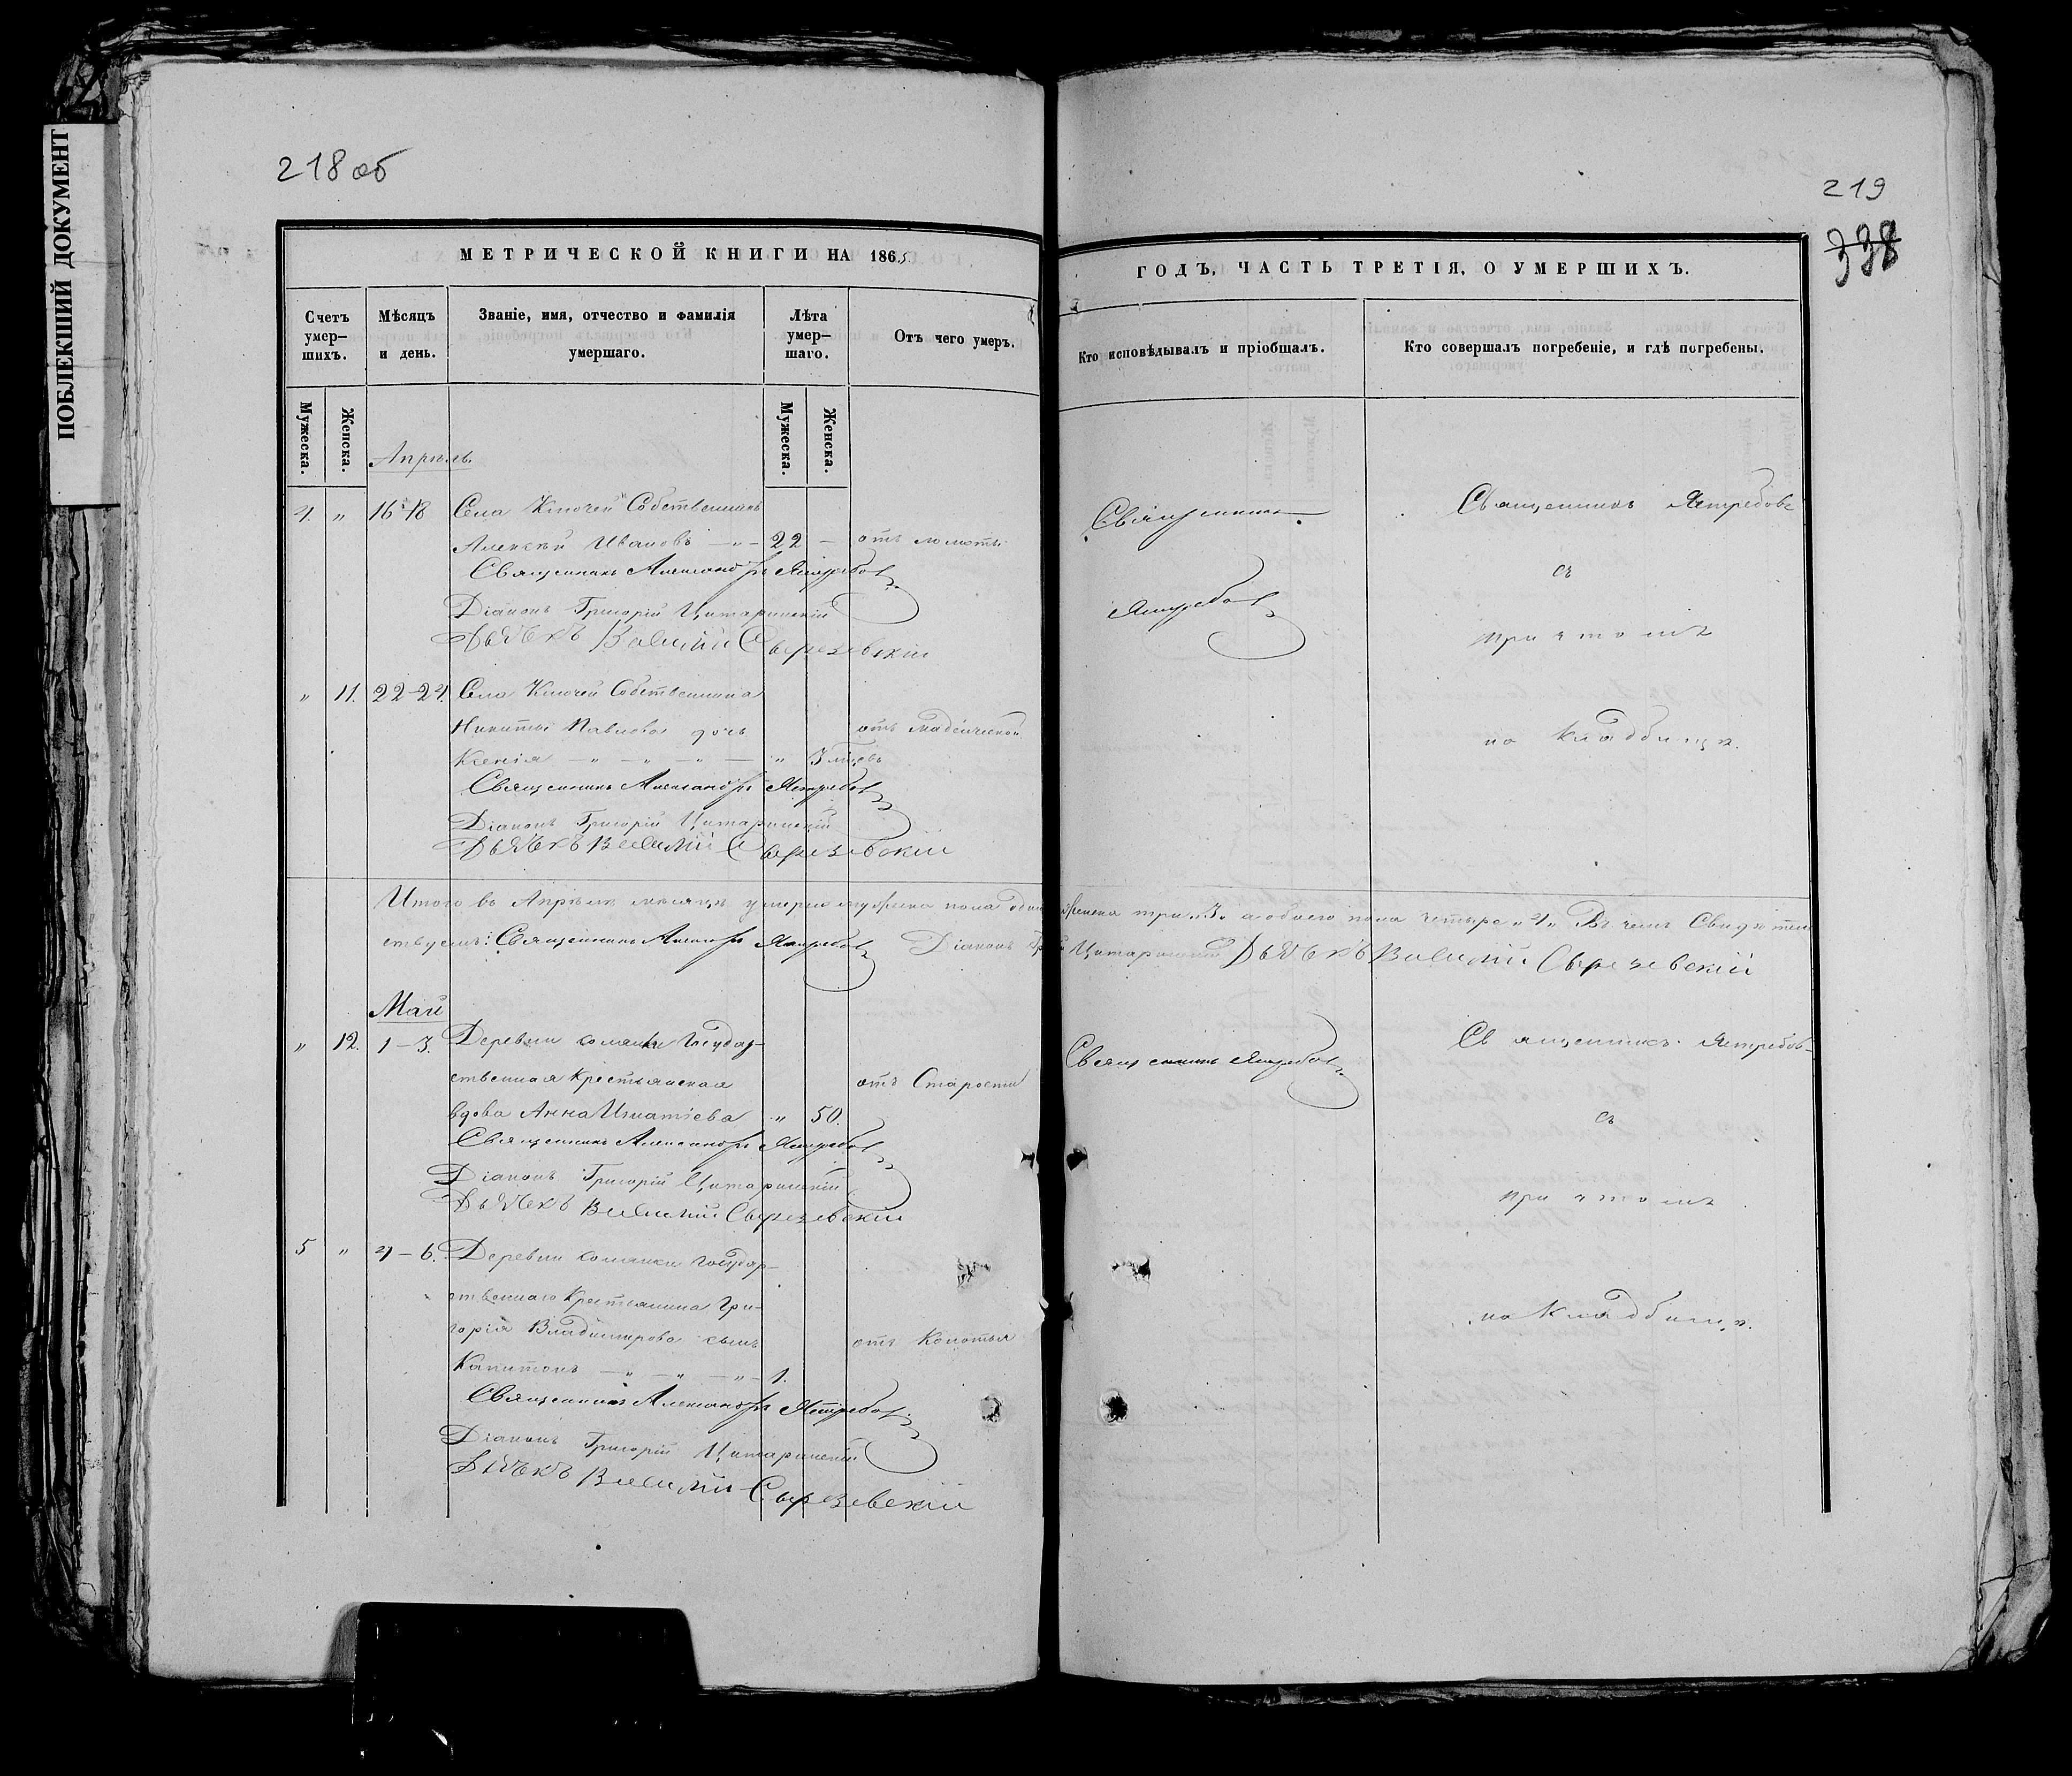 ПОБЛЕКШИЙ ДОКУМЕНТ
218 об
МЕТРИЧЕСКОЙ КНИГИ НА 1865
Счетъ умер-шихъ.
Мѣсяцъ и день.
Званіе, имя, отчество и фамилія умершаго.
Лѣта умер-шаго.
Отъ чего умеръ.
Мужеска.
Женска.
Мужеска.
Женска.
Апрѣль.
4. " 16-18 Села Ключей Собственникъ
Алексѣй Ивановъ — " — 22 —
Священникъ Александръ Ястребовъ
Діаконъ Григорій Цитаринскій
Дьячекъ Василій
" 11. 22-24. Села Ключей Собственника
Никиты Павлова дочь отъ младенческой
Ксенія — " — " — " — " 3 мѣсцевъ
Священникъ Александръ Ястребовъ
Діаконъ Григорій Цитаринскій
Дьячекъ Василій
Итого въ Апрѣлѣ мѣсяцѣ умерло мужеска пола одинъ женска три "3" а обоего пола четыре "4" Въ чемъ Свидѣтель
ствуемъ: Священникъ Александръ Ястребовъ Діаконъ Цитаринскій Дьячекъ Василій
Май
" 12. 1-3. Деревни Государ-
ственная Крестьянская отъ Старости
вдова Анна Игнатіева " 50.
Священникъ Александръ Ястребовъ
Діаконъ Григорій Цитаринскій
Дьячекъ Василій
5 " 4-6. Деревни Государ-
ственнаго Крестьянина Гри-
горія Владимирова сынъ отъ
Капитонъ — " — " — " — 1.
Священникъ Александръ Ястребовъ
Діаконъ Григорій Цитаринскій
Дьячекъ Василій
219
338
ГОДЪ, ЧАСТЬ ТРЕТІЯ, О УМЕРШИХЪ.
Кто исповѣдывалъ и пріобщалъ.
Кто совершалъ погребеніе, и гдѣ погребены.
Священникъ
Ястребовъ
Священникъ Ястребовъ
съ
причтомъ
на Кладбищѣ.
Священникъ Ястребовъ
Священникъ Ястребовъ
съ
причтомъ
на Кладбищѣ.